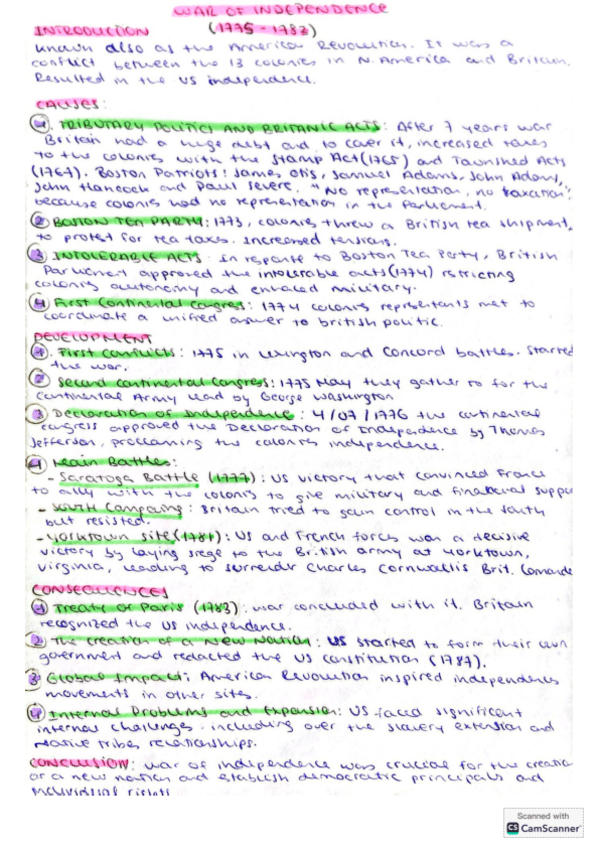 WAR OF INDEPENDENCE
INTRODUCTION (1775-1783)
known also as the American Revolution. It was a
conflict between the 13 colonies in N. America and Britain.
Resulted in the US independence.
CAUSES:
1. TRIBUTARY POLITICS AND BRITANIC ACTS: After 7 years war
Britain had a huge debt and to cover it, increased taxes
to the colonies with the Stamp Act (1765) and Townshed Acts
(1767). Boston Patriots: James Otis, Samuel Adams, John Adams,
John Hancock and Paul Severe. "No representation, no taxation",
because colonies had no representation in the Parliament.
2 BOSTON TEA PARTY: 1773, colonies threw a British tea shipment,
to protest for tea taxes. Increased tensions.
3 INTOLERABLE ACTS: In response to Boston Tea Party, British
Parliament approved the intolerable acts (1774) restricting
colonies autonomy and military.
4 First Continental Congress: 1774 colonies representants met to
coordinate a unified answer to british politic.
DEVELOPMENT
1. First Conflicts: 1775 in Lexington and Concord battles. Started
the war.
2 Second Continental Congress: 1775 May they gather to for the
Continental Army lead by George Washington
3 Declaration of Independence: 4/07/1776 the continental
congress approved the Declaration of Independence by Thomas
Jefferson, proclaming the colonies independence.
4 Main Battles:
- Saratoga Battle (1777): US victory that convinced France
to ally with the colonis to give military and financial suppo
- SOUTH Campaing: Britain tried to gain control in the south
but resisted.
- Yorktown site (1781): US and French forces won a decisive
victory by laying siege to the British army at Yorktown,
Virginia, leading to surrender Charles Cornwallis Brit. Comande
CONSECUENCES
1 Treaty of Paris (1783): war concluded with it. Britain
recognized the US independence.
2. The creation of a New Nation: US started to form their own
government and redacted the US constitution (1787).
3 Global Impact: American Revolution inspired independence
movements in other sites.
4 Internal Problems and Expansion: US faced significant
internal challenges. including over the slavery extension and
Native tribes relationships.
CONCLUSION: War of Independence was crucial for the creation
of a new nation and establish democratic principals and
individual rights
Scanned with
CS CamScanner